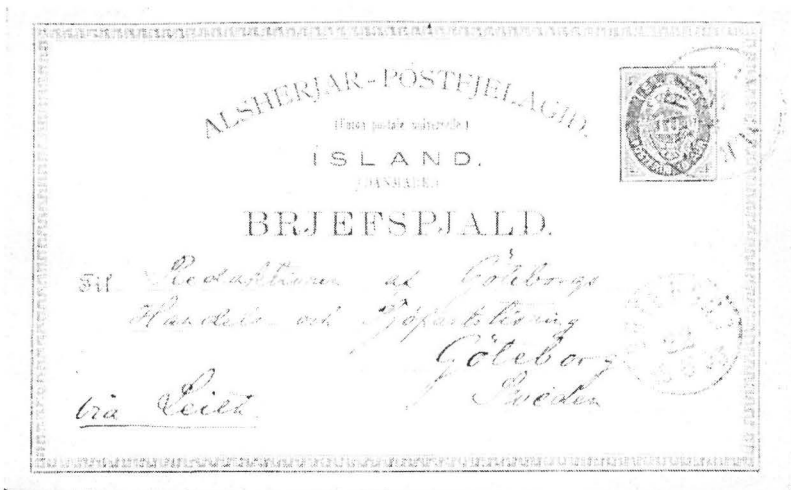 ALSHERJAR-PÓSTFJELAGID.
(Union postale universelle)
ÍSLAND.
(DANMARK.)
BRJEFSPJALD.
Til Redaktionen af Göteborgs
Handels- och Sjöfartstidning
Göteborg
Sweden
via Leith